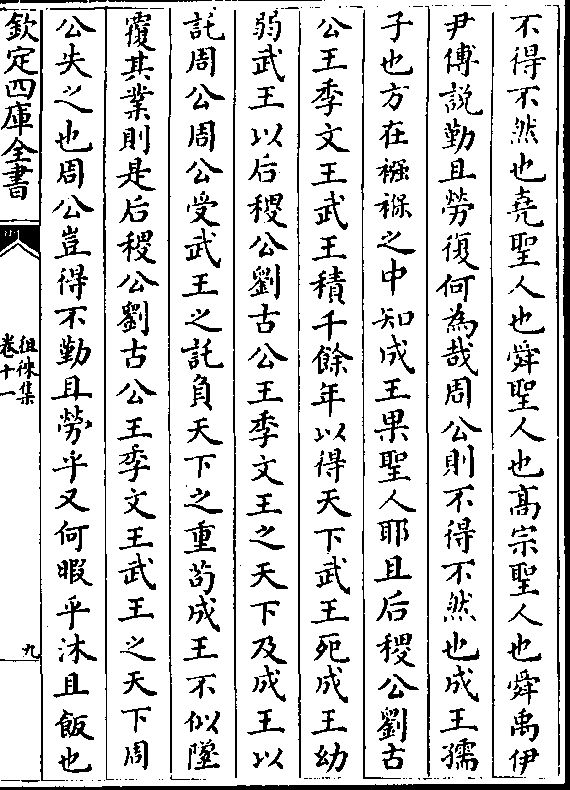 不得不然也堯聖人也舜聖人也髙宗聖人也舜禹伊
尹傅説勤且勞復何為哉周公則不得不然也成王孺
子也方在襁褓之中知成王果聖人耶且后稷公劉古
公王季文王武王積千餘年以得天下武王死成王幼
弱武王以后稷公劉古公王季文王之天下及成王以
託周公周公受武王之託負天下之重茍成王不似墜
覆其業則是后稷公劉古公王季文王武王之天下周
公失之也周公豈得不勤且勞乎又何暇乎沐且飯也
欽定四庫全書
徂徠集
卷十一
九